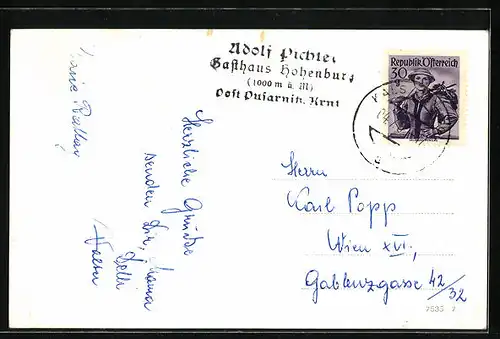 Adolf Pichler
Gasthaus Hohenburg
(1000 m ü. M)
Post Pusarnitz, Krnt
Republik Österreich
30
Herzliche Grüsse
senden Dir, Mama
Vater
Herrn
Karl Popp
Wien XVI.,
Gablenzgasse 42/32
7535 7